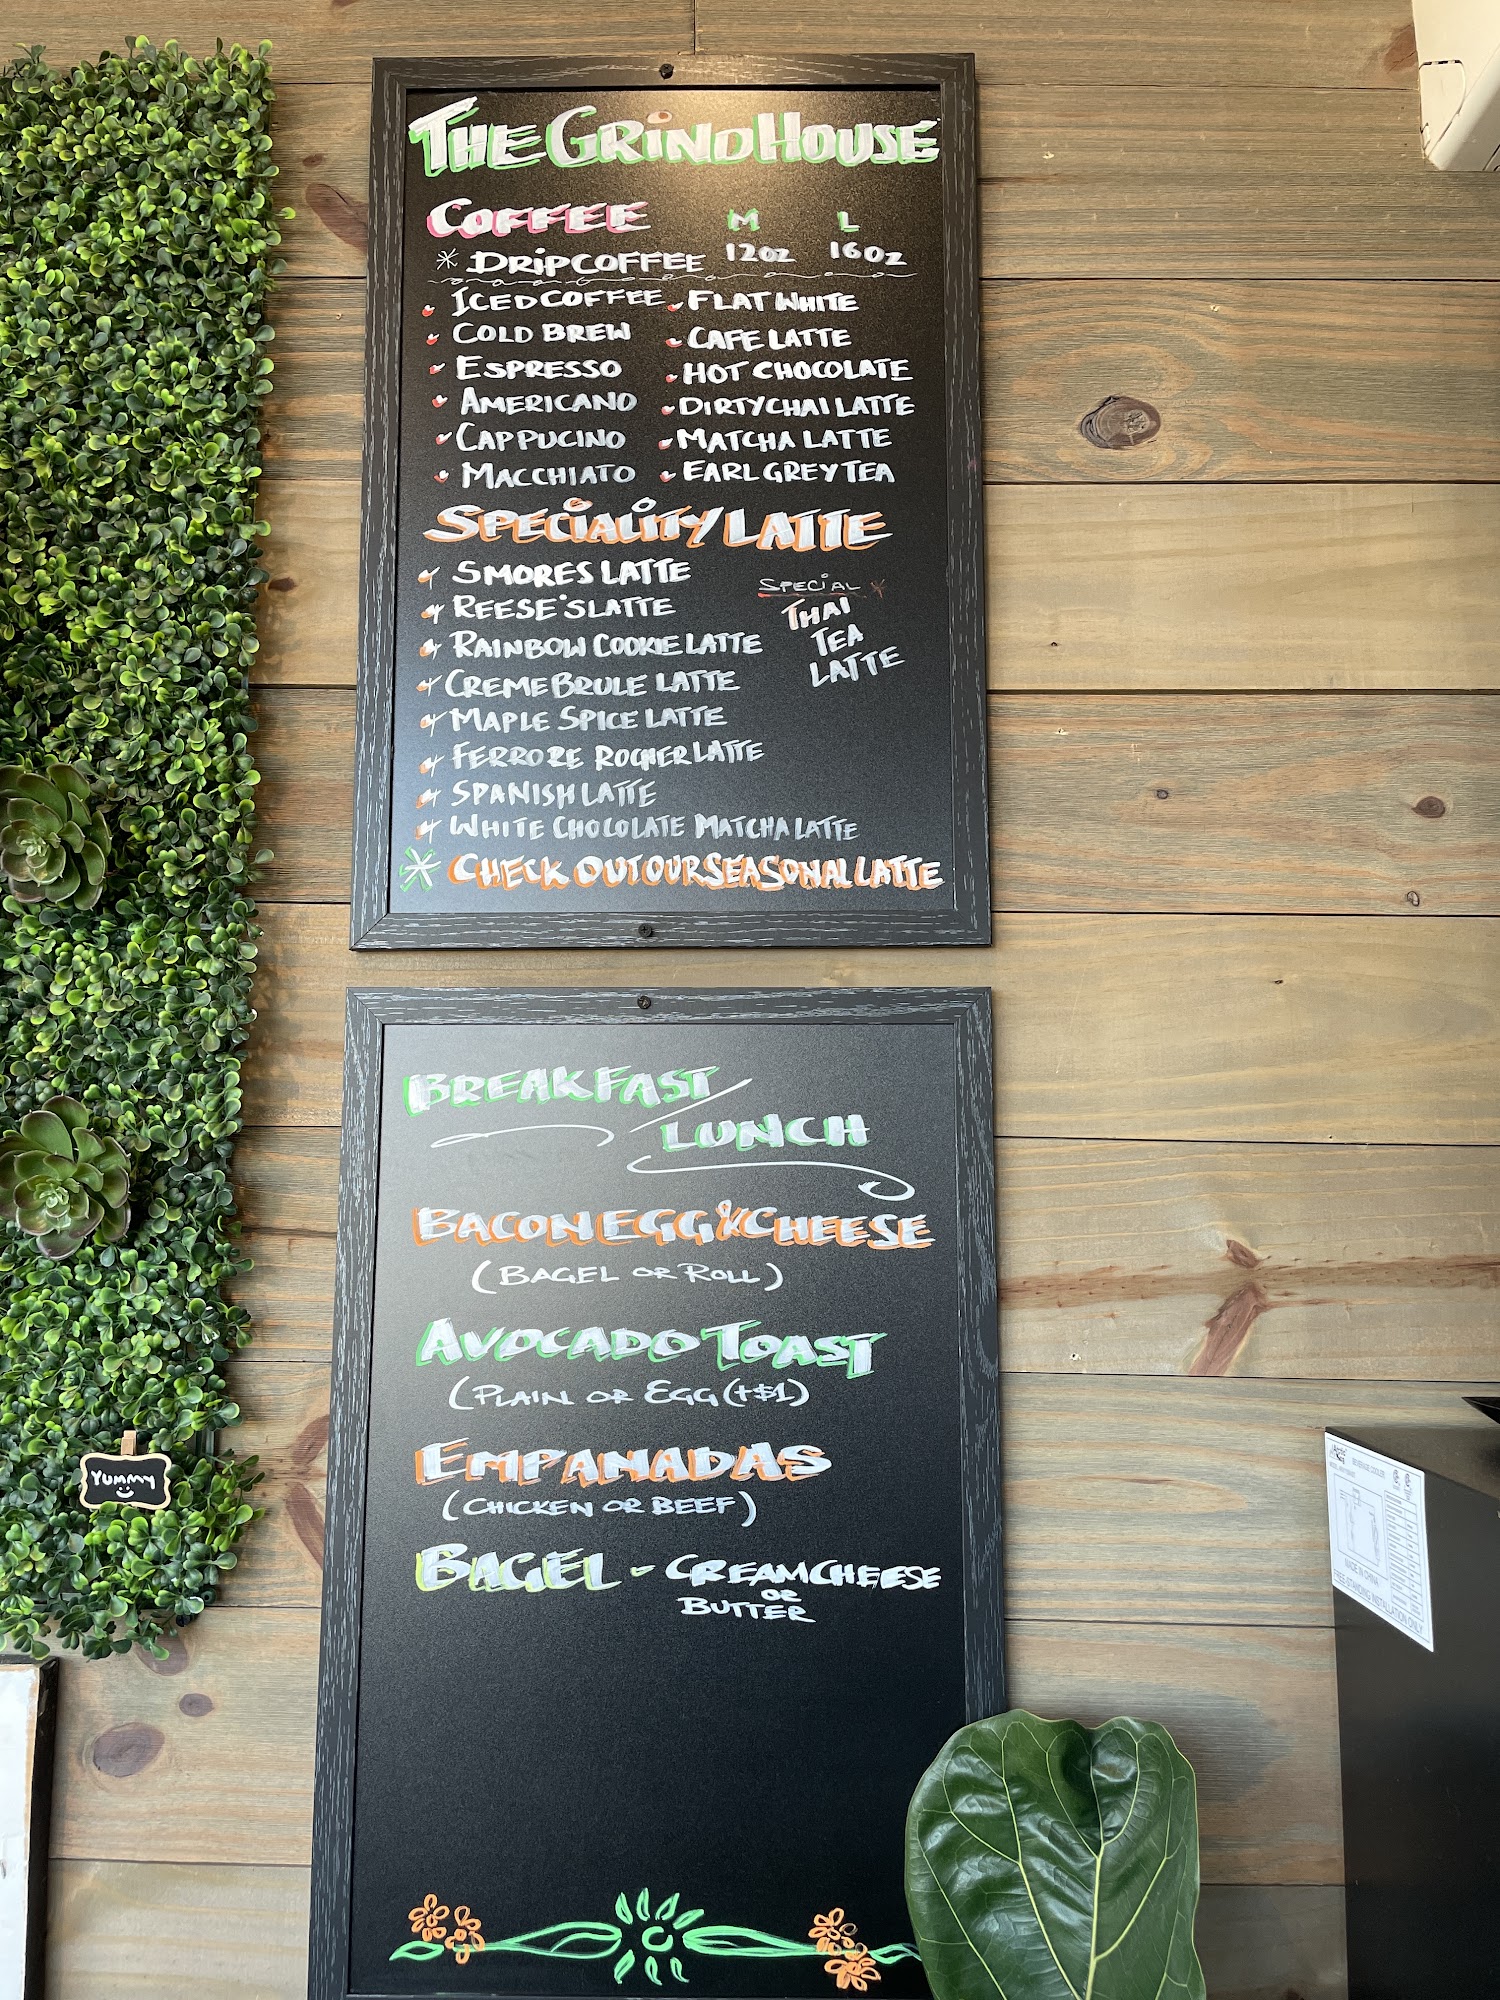 THE GRIND HOUSE
COFFEE M L
* DRIP COFFEE 12oz 16oz
ICED COFFEE
COLD BREW
ESPRESSO
AMERICANO
CAPPUCINO
MACCHIATO
FLAT WHITE
CAFE LATTE
HOT CHOCOLATE
DIRTY CHAI LATTE
MATCHA LATTE
EARL GREY TEA
SPECIALITY LATTE
SMORES LATTE
REESE'S LATTE
RAINBOW COOKIE LATTE
CREME BRULE LATTE
MAPLE SPICE LATTE
FERRORE ROCHER LATTE
SPANISH LATTE
WHITE CHOCOLATE MATCHA LATTE
SPECIAL *
THAI
TEA
LATTE
* CHECK OUT OUR SEASONAL LATTE
BREAKFAST/
LUNCH
BACON EGG & CHEESE
(BAGEL OR ROLL)
AVOCADO TOAST
(PLAIN OR EGG (+$1)
EMPANADAS
(CHICKEN OR BEEF)
BAGEL - CREAM CHEESE
OR
BUTTER
YUMMY
BEVERAGE COOLER
MADE IN CHINA
FREE-STANDING INSTALLATION ONLY